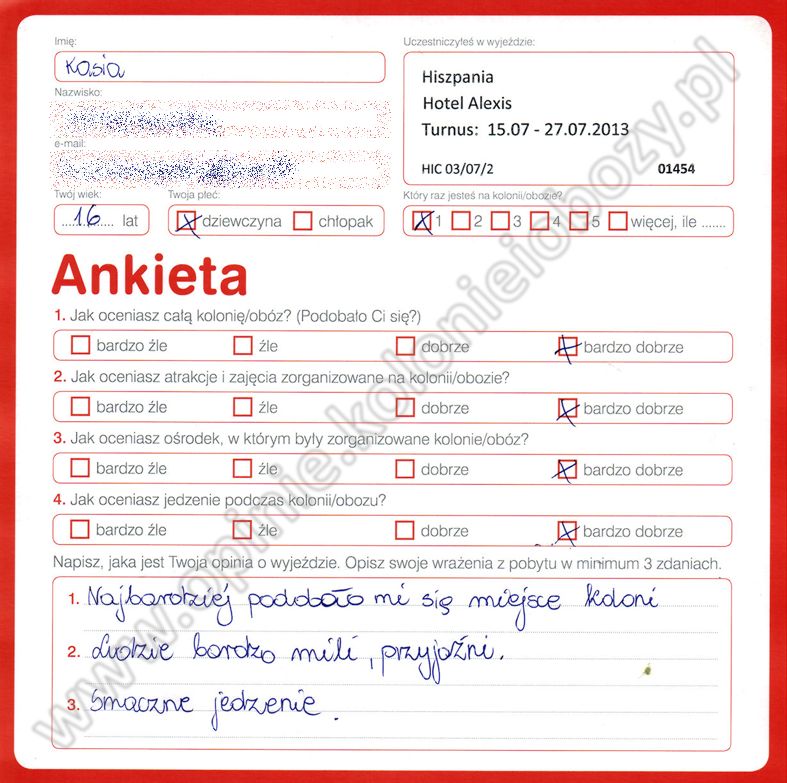 Imię:
Kasia
Nazwisko:
e-mail:
Uczestniczyłeś w wyjeździe:
Hiszpania
Hotel Alexis
Turnus: 15.07 - 27.07.2013
HIC 03/07/2 01454
Twój wiek:
16 lat
Twoja płeć:
dziewczyna chłopak
Który raz jesteś na kolonii/obozie?
1 2 3 4 5 więcej, ile .......
Ankieta
1. Jak oceniasz całą kolonię/obóz? (Podobało Ci się?)
bardzo źle źle dobrze bardzo dobrze
2. Jak oceniasz atrakcje i zajęcia zorganizowane na kolonii/obozie?
bardzo źle źle dobrze bardzo dobrze
3. Jak oceniasz ośrodek, w którym były zorganizowane kolonie/obóz?
bardzo źle źle dobrze bardzo dobrze
4. Jak oceniasz jedzenie podczas kolonii/obozu?
bardzo źle źle dobrze bardzo dobrze
Napisz, jaka jest Twoja opinia o wyjeździe. Opisz swoje wrażenia z pobytu w minimum 3 zdaniach.
1. Najbardziej podobało mi się miejsce koloni
2. Ludzie bardzo mili, przyjaźni.
3. Smaczne jedzenie.
www.opinie.kolonieiobozy.pl